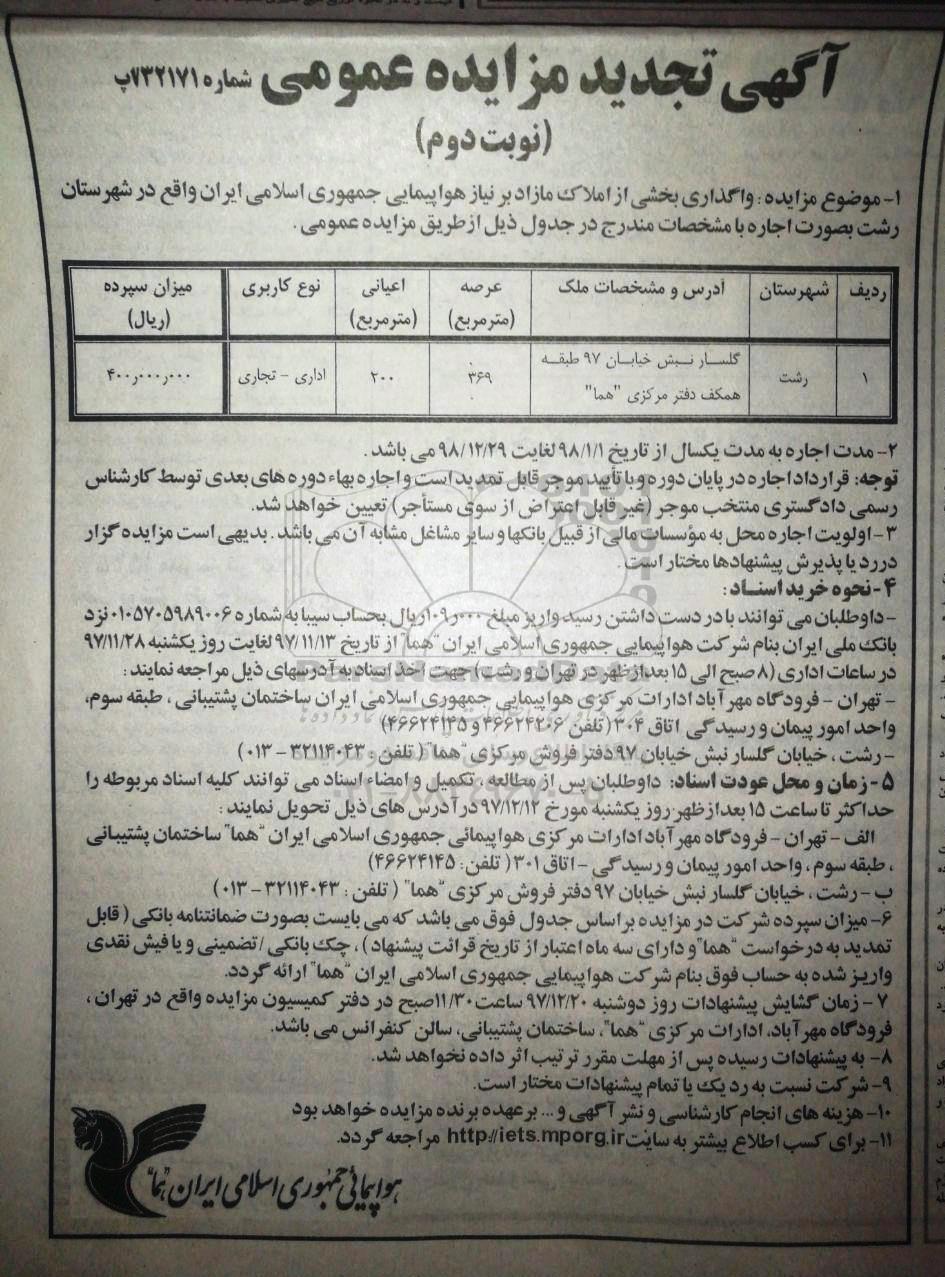 آگهی تجدید مزایده عمومی شماره ۷۳۲۱۷۱پ
(نوبت دوم)
۱- موضوع مزایده : واگذاری بخشی از املاک مازاد بر نیاز هواپیمایی جمهوری اسلامی ایران واقع در شهرستان
رشت بصورت اجاره با مشخصات مندرج در جدول ذیل از طریق مزایده عمومی .
ردیف شهرستان آدرس و مشخصات ملک عرصه (مترمربع) اعیانی (مترمربع) نوع کاربری میزان سپرده (ریال)
۱ رشت گلسار نبش خیابان ۹۷ طبقه همکف دفتر مرکزی "هما" ۳۶۹ ۲۰۰ اداری - تجاری ۴۰۰٫۰۰۰٫۰۰۰
۲- مدت اجاره به مدت یکسال از تاریخ ۹۸/۱/۱ لغایت ۹۸/۱۲/۲۹ می باشد .
توجه: قرارداد اجاره در پایان دوره و با تأیید موجر قابل تمدید است و اجاره بهاء دوره های بعدی توسط کارشناس
رسمی دادگستری منتخب موجر (غیر قابل اعتراض از سوی مستأجر) تعیین خواهد شد.
۳- اولویت اجاره محل به مؤسسات مالی از قبیل بانکها و سایر مشاغل مشابه آن می باشد . بدیهی است مزایده گزار
در رد یا پذیرش پیشنهادها مختار است .
۴- نحوه خرید اسناد :
- داوطلبان می توانند با در دست داشتن رسید واریز مبلغ ۱۰۹٫۰۰۰ریال بحساب سیبا به شماره ۰۱۰۵۷۰۵۹۸۹۰۰۶ نزد
بانک ملی ایران بنام شرکت هواپیمایی جمهوری اسلامی ایران "هما" از تاریخ ۹۷/۱۱/۱۳ لغایت روز یکشنبه ۹۷/۱۱/۲۸
در ساعات اداری (۸ صبح الی ۱۵ بعدازظهر در تهران و رشت) جهت اخذ اسناد به آدرسهای ذیل مراجعه نمایند :
- تهران - فرودگاه مهرآباد ادارات مرکزی هواپیمایی جمهوری اسلامی ایران ساختمان پشتیبانی ، طبقه سوم،
واحد امور پیمان و رسیدگی اتاق ۳۰۴ ( تلفن ۴۶۶۲۴۲۰۶ و ۴۶۶۲۴۱۴۵)
- رشت ، خیابان گلسار نبش خیابان ۹۷ دفتر فروش مرکزی "هما" ( تلفن : ۳۲۱۱۴۰۴۳ - ۰۱۳)
۵- زمان و محل عودت اسناد: داوطلبان پس از مطالعه ، تکمیل و امضاء اسناد می توانند کلیه اسناد مربوطه را
حداکثر تا ساعت ۱۵ بعدازظهر روز یکشنبه مورخ ۹۷/۱۲/۱۲ در آدرس های ذیل تحویل نمایند :
الف - تهران - فرودگاه مهرآباد ادارات مرکزی هواپیمائی جمهوری اسلامی ایران "هما" ساختمان پشتیبانی
، طبقه سوم ، واحد امور پیمان و رسیدگی - اتاق ۳۰۱ ( تلفن: ۴۶۶۲۴۱۴۵)
ب - رشت ، خیابان گلسار نبش خیابان ۹۷ دفتر فروش مرکزی "هما" ( تلفن : ۳۲۱۱۴۰۴۳ - ۰۱۳)
۶- میزان سپرده شرکت در مزایده براساس جدول فوق می باشد که می بایست بصورت ضمانتنامه بانکی ( قابل
تمدید به درخواست "هما" و دارای سه ماه اعتبار از تاریخ قرائت پیشنهاد ) ، چک بانکی / تضمینی و یا فیش نقدی
واریز شده به حساب فوق بنام شرکت هواپیمایی جمهوری اسلامی ایران "هما" ارائه گردد.
۷- زمان گشایش پیشنهادات روز دوشنبه ۹۷/۱۲/۲۰ ساعت ۱۱/۳۰صبح در دفتر کمیسیون مزایده واقع در تهران ،
فرودگاه مهرآباد، ادارات مرکزی "هما"، ساختمان پشتیبانی، سالن کنفرانس می باشد.
۸- به پیشنهادات رسیده پس از مهلت مقرر ترتیب اثر داده نخواهد شد.
۹- شرکت نسبت به رد یک یا تمام پیشنهادات مختار است.
۱۰- هزینه های انجام کارشناسی و نشر آگهی و... بر عهده برنده مزایده خواهد بود
۱۱- برای کسب اطلاع بیشتر به سایت http://iets.mporg.ir مراجعه گردد.
هواپیمائی جمهوری اسلامی ایران "هما"